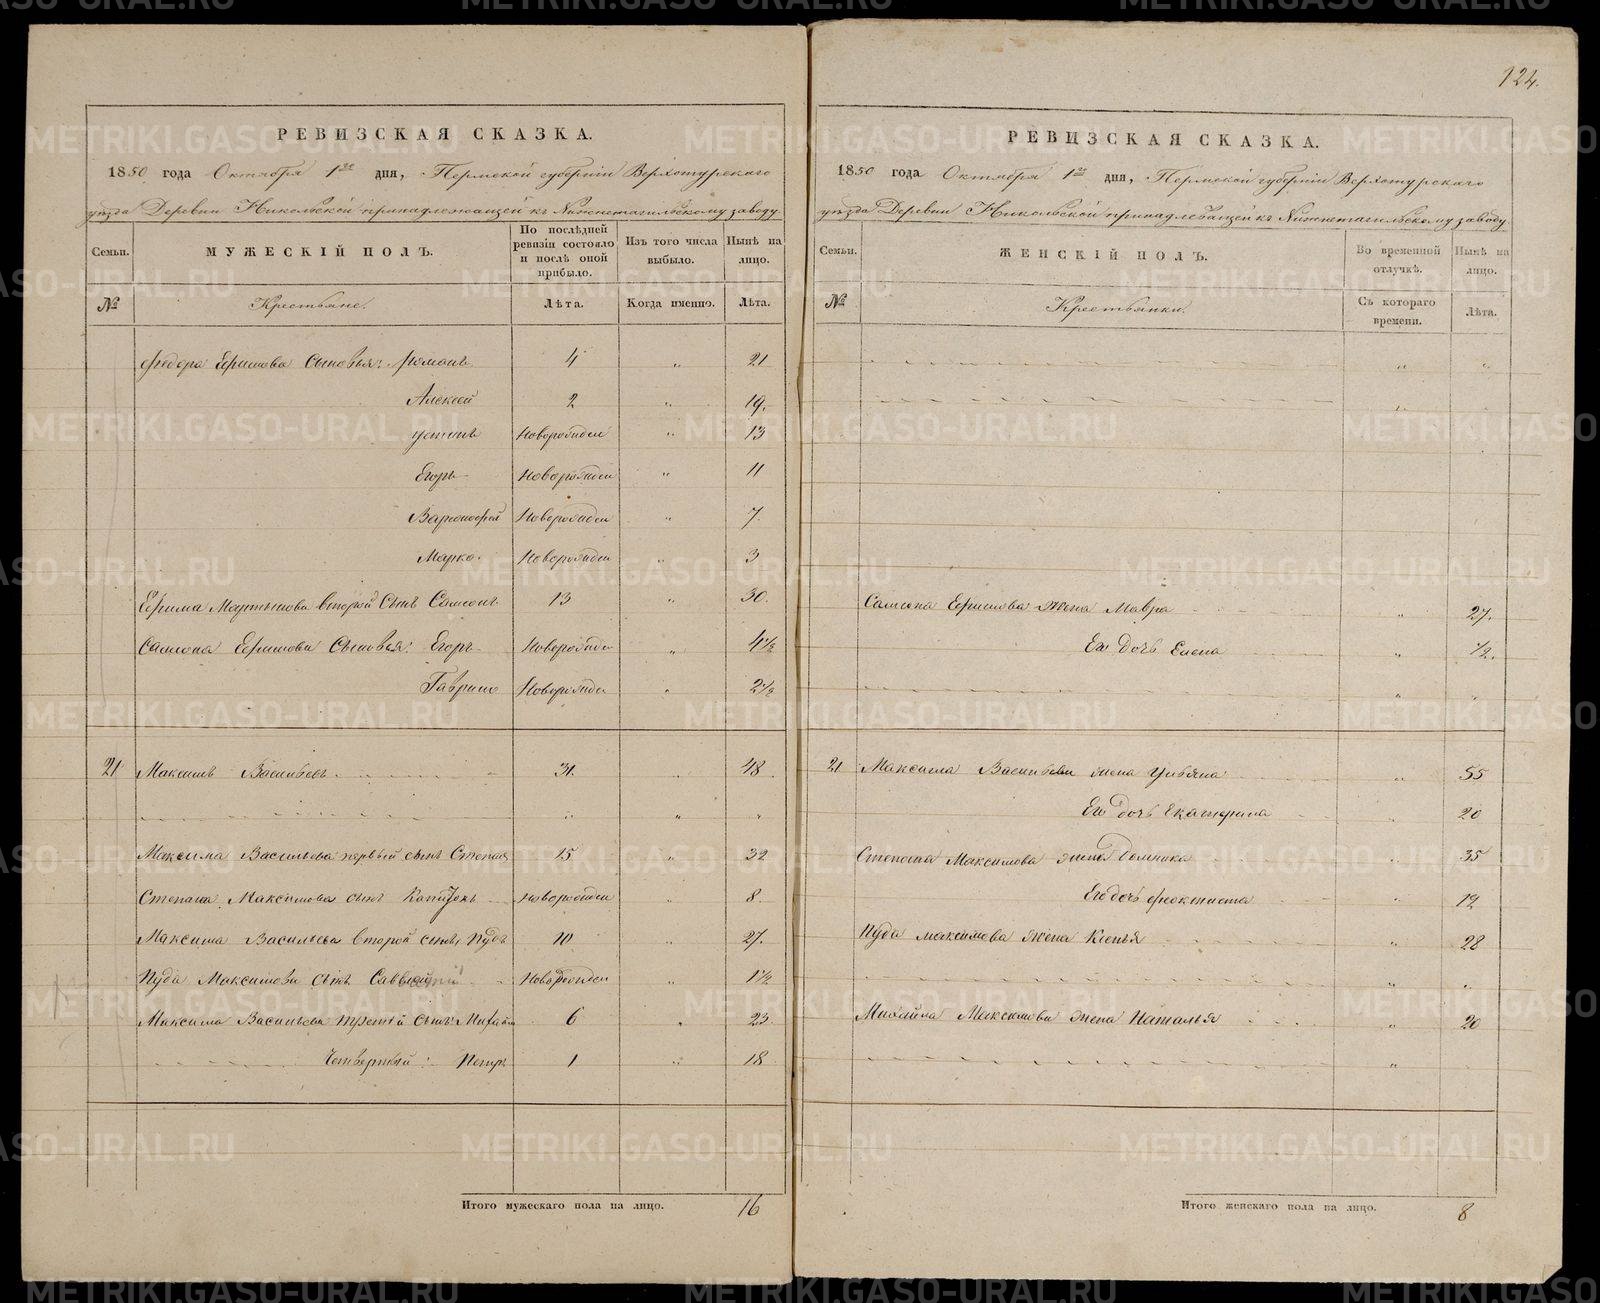 124.
РЕВИЗСКАЯ СКАЗКА.
1850 года Октября 1го дня, Пермской губерніи Верхотурскаго
уѣзда Деревни Никольской принадлежащей къ Нижнетагильскому заводу
Семьи. МУЖЕСКІЙ ПОЛЪ. По послѣдней ревизіи состояло и послѣ оной прибыло. Изъ того числа выбыло. Нынѣ на лицо.
№ Крестьяне. Лѣта. Когда именно. Лѣта.
Федора Ефимова Сыновья: Романъ 4 „ 21
Алексей 2 „ 19.
Устинъ Новорожден „ 13
Егоръ Новорожден „ 11
Варфоломей Новорожден „ 7.
Марко. Новорожден „ 3
Ефима Мартынова второй Сынъ Самсонъ 13 „ 30.
Самсона Ефимова Сыновья: Егоръ Новорожден „ 4 1/2
Гаврило Новорожден „ 2 1/2
21 Максимъ Васильевъ 31. „ 48
„ „ „
Максима Васильева первый сынъ Степанъ 15 „ 32
Степана Максимова сынъ Капитонъ Новорожден „ 8
Максима Васильева второй сынъ Пудъ 10 „ 27.
Пуда Максимова сынъ Новорожден „ 1 1/2
Максима Васильева третій сынъ Михайло 6 „ 23
Четвертый: Петръ 1 „ 18
Итого мужескаго пола на лицо. 16
РЕВИЗСКАЯ СКАЗКА.
1850 года Октября 1го дня, Пермской губерніи Верхотурскаго
уѣзда Деревни Никольской принадлежащей къ Нижнетагильскому заводу
Семьи. ЖЕНСКІЙ ПОЛЪ. Во временной отлучкѣ. Нынѣ на лицо.
№ Крестьянки. Съ котораго времени. Лѣта.
„ „
„
Самсона Ефимова жена Мавра „ 27.
Его дочь Елена „ 1/2.
„
21 Максима Васильева жена Ульяна „ 55
Его дочь Екатерина „ 20
Степана Максимова жена Домника „ 35
Его дочь Феоктиста „ 12
Пуда Максимова жена Ксенья „ 28
„
Михайла Максимова жена Наталья „ 20
„
Итого женскаго пола на лицо. 8
METRIKI.GASO-URAL.RU